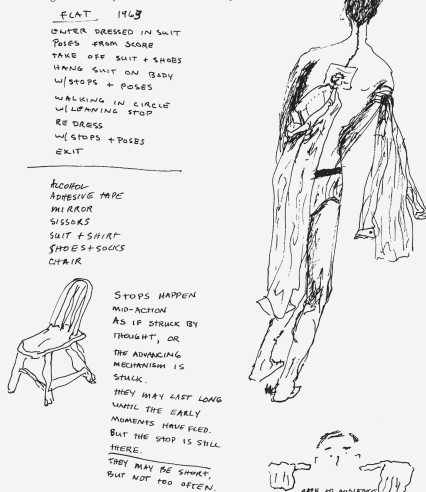 FLAT 1963
ENTER DRESSED IN SUIT
POSES FROM SCORE
TAKE OFF SUIT + SHOES
HANG SUIT ON BODY
W/STOPS + POSES
WALKING IN CIRCLE
W/ LEANING STOP
RE DRESS
W/ STOPS + POSES
EXIT
ALCOHOL
ADHESIVE TAPE
MIRROR
SISSORS
SUIT + SHIRT
SHOES + SOCKS
CHAIR
STOPS HAPPEN
MID-ACTION
AS IF STRUCK BY
THOUGHT, OR
THE ADVANCING
MECHANISM IS
STUCK.
THEY MAY LAST LONG
UNTIL THE EARLY
MOMENTS HAVE FLED.
BUT THE STOP IS STILL
THERE.
THEY MAY BE SHORT,
BUT NOT TOO OFTEN.